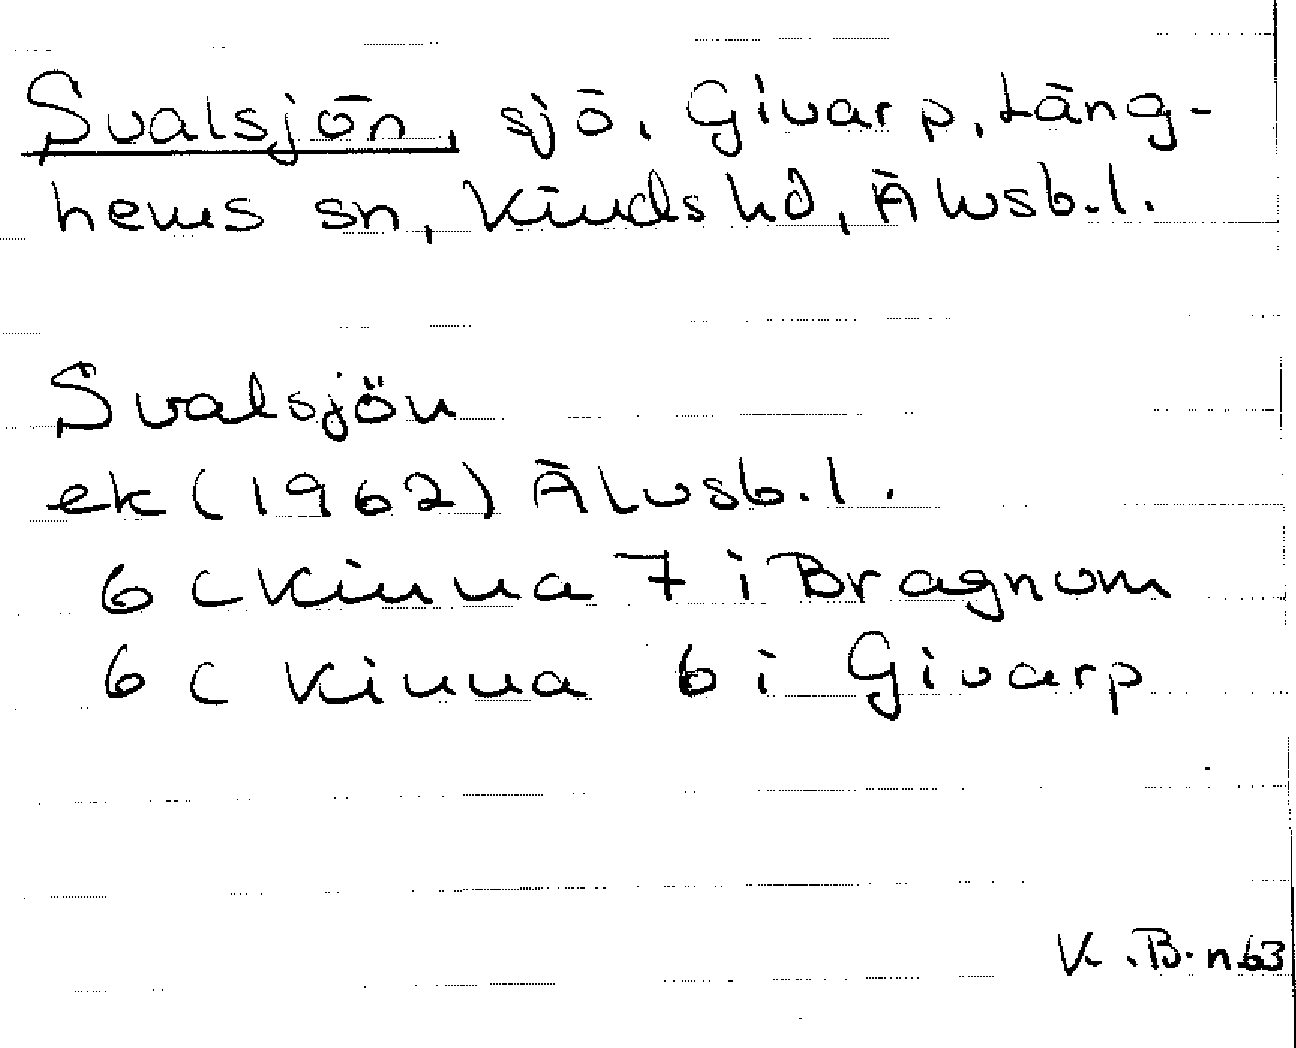 Svalsjön, sjö, Givarp, Läng-
hems sn, Kinds hd, Älvsb.l.
Svalsjön
ek (1962) Älvsb.l.
6 C Kinna 7 i Bragnum
6 C Kinna 6 i Givarp
K.B-n 63